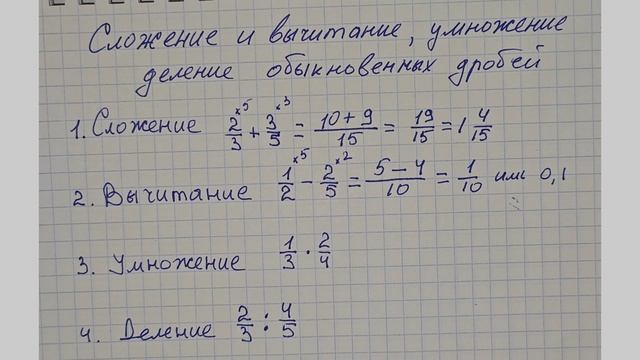 Сложение и вычитание, умножение
деление обыкновенных дробей
1. Сложение 2/3 ×5 + 3/5 ×3 = 10+9/15 = 19/15 = 1 4/15
2. Вычитание 1/2 ×5 - 2/5 ×2 = 5-4/10 = 1/10 или 0,1
3. Умножение 1/3 · 2/4
4. Деление 2/3 : 4/5